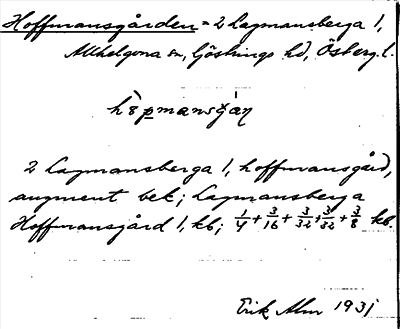 Hoffmansgården = 2 Lagmansberga 1,
Allhelgona sn, Göstrings hd, Östergl.
2 Lagmansberga 1, hoffmansgård,
augment bek; Lagmansberga
Hoffmansgård 1, kb; 1/4 + 3/16 + 3/32 + 3/32 + 3/8 kb.
Erik Alm 1931